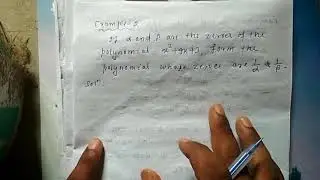 Example-2
If α and β are the zeroes of the
polynomial x²+9x+3, form the
polynomial whose zeroes are 1/α & 1/β.
Solⁿ.